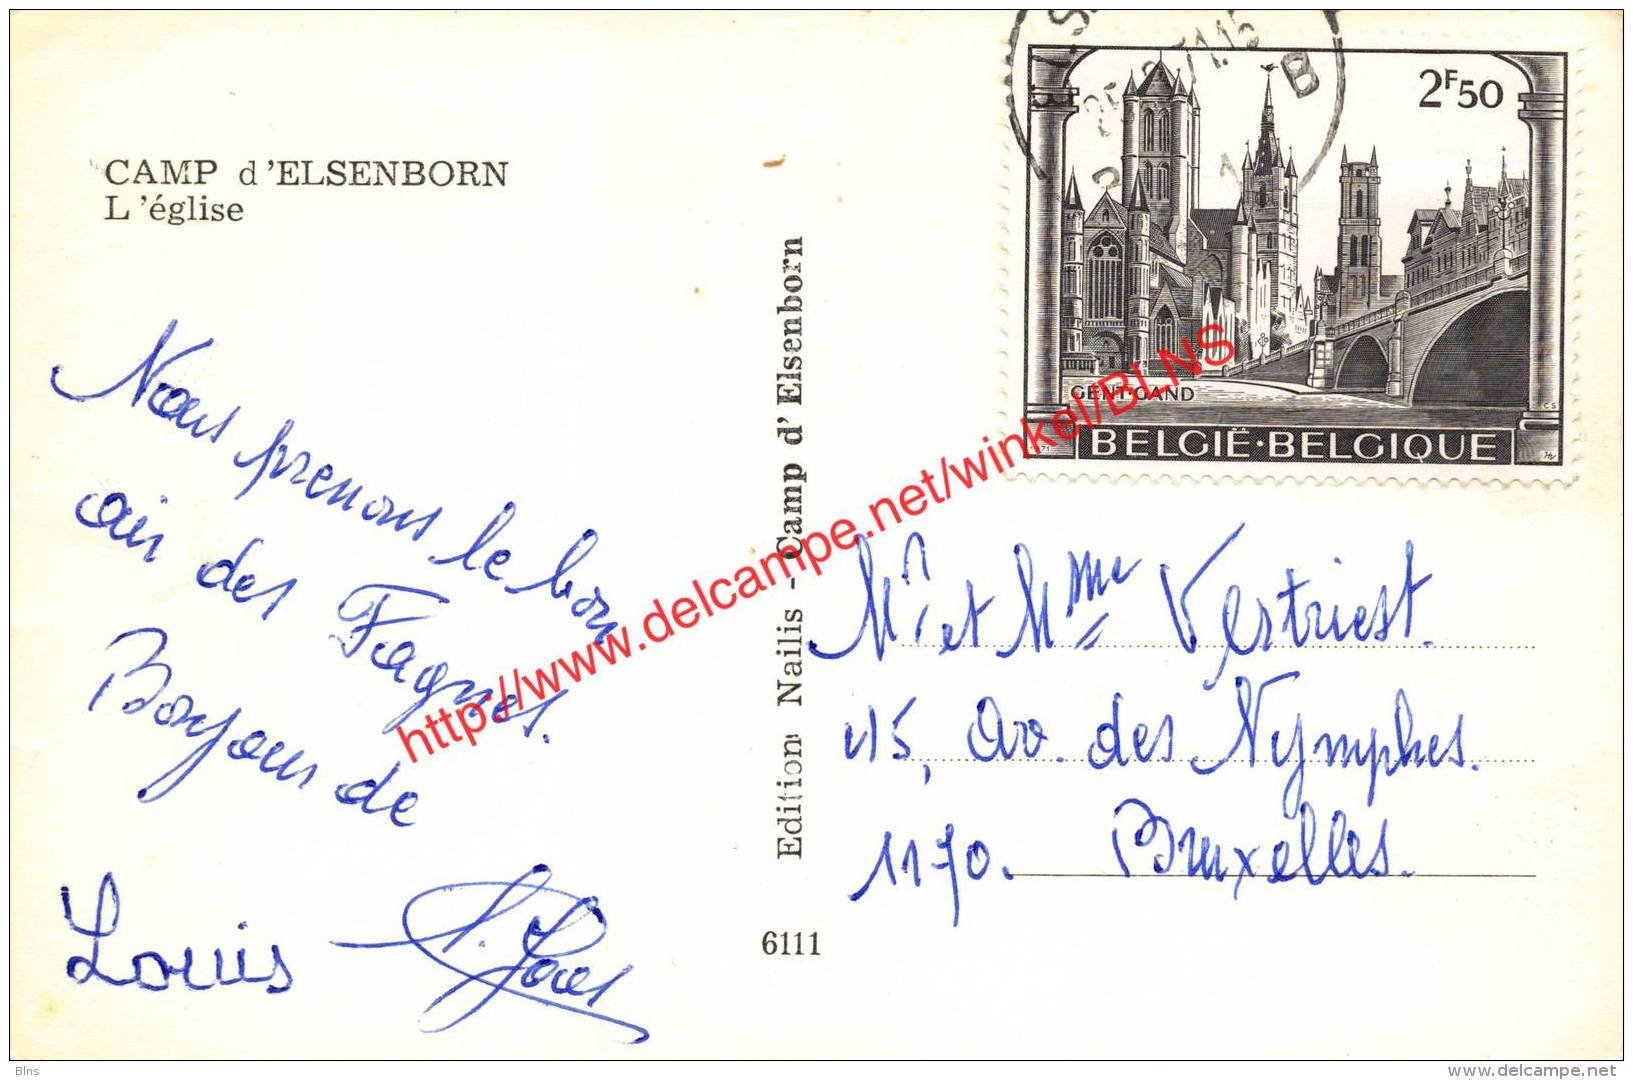 CAMP d'ELSENBORN
L'église
Nous prenons le bon
air des Fagnes.
Bonjour de
Louis
Edition Nailis - Camp d'Elsenborn
6111
B
2F50
GENT·GAND
BELGIË·BELGIQUE
71
Mr et Mme Vertriest.
45, Av. des Nymphes.
1170. Bruxelles.
http://www.delcampe.net/winkel/BLNS
Blns
www.delcampe.net